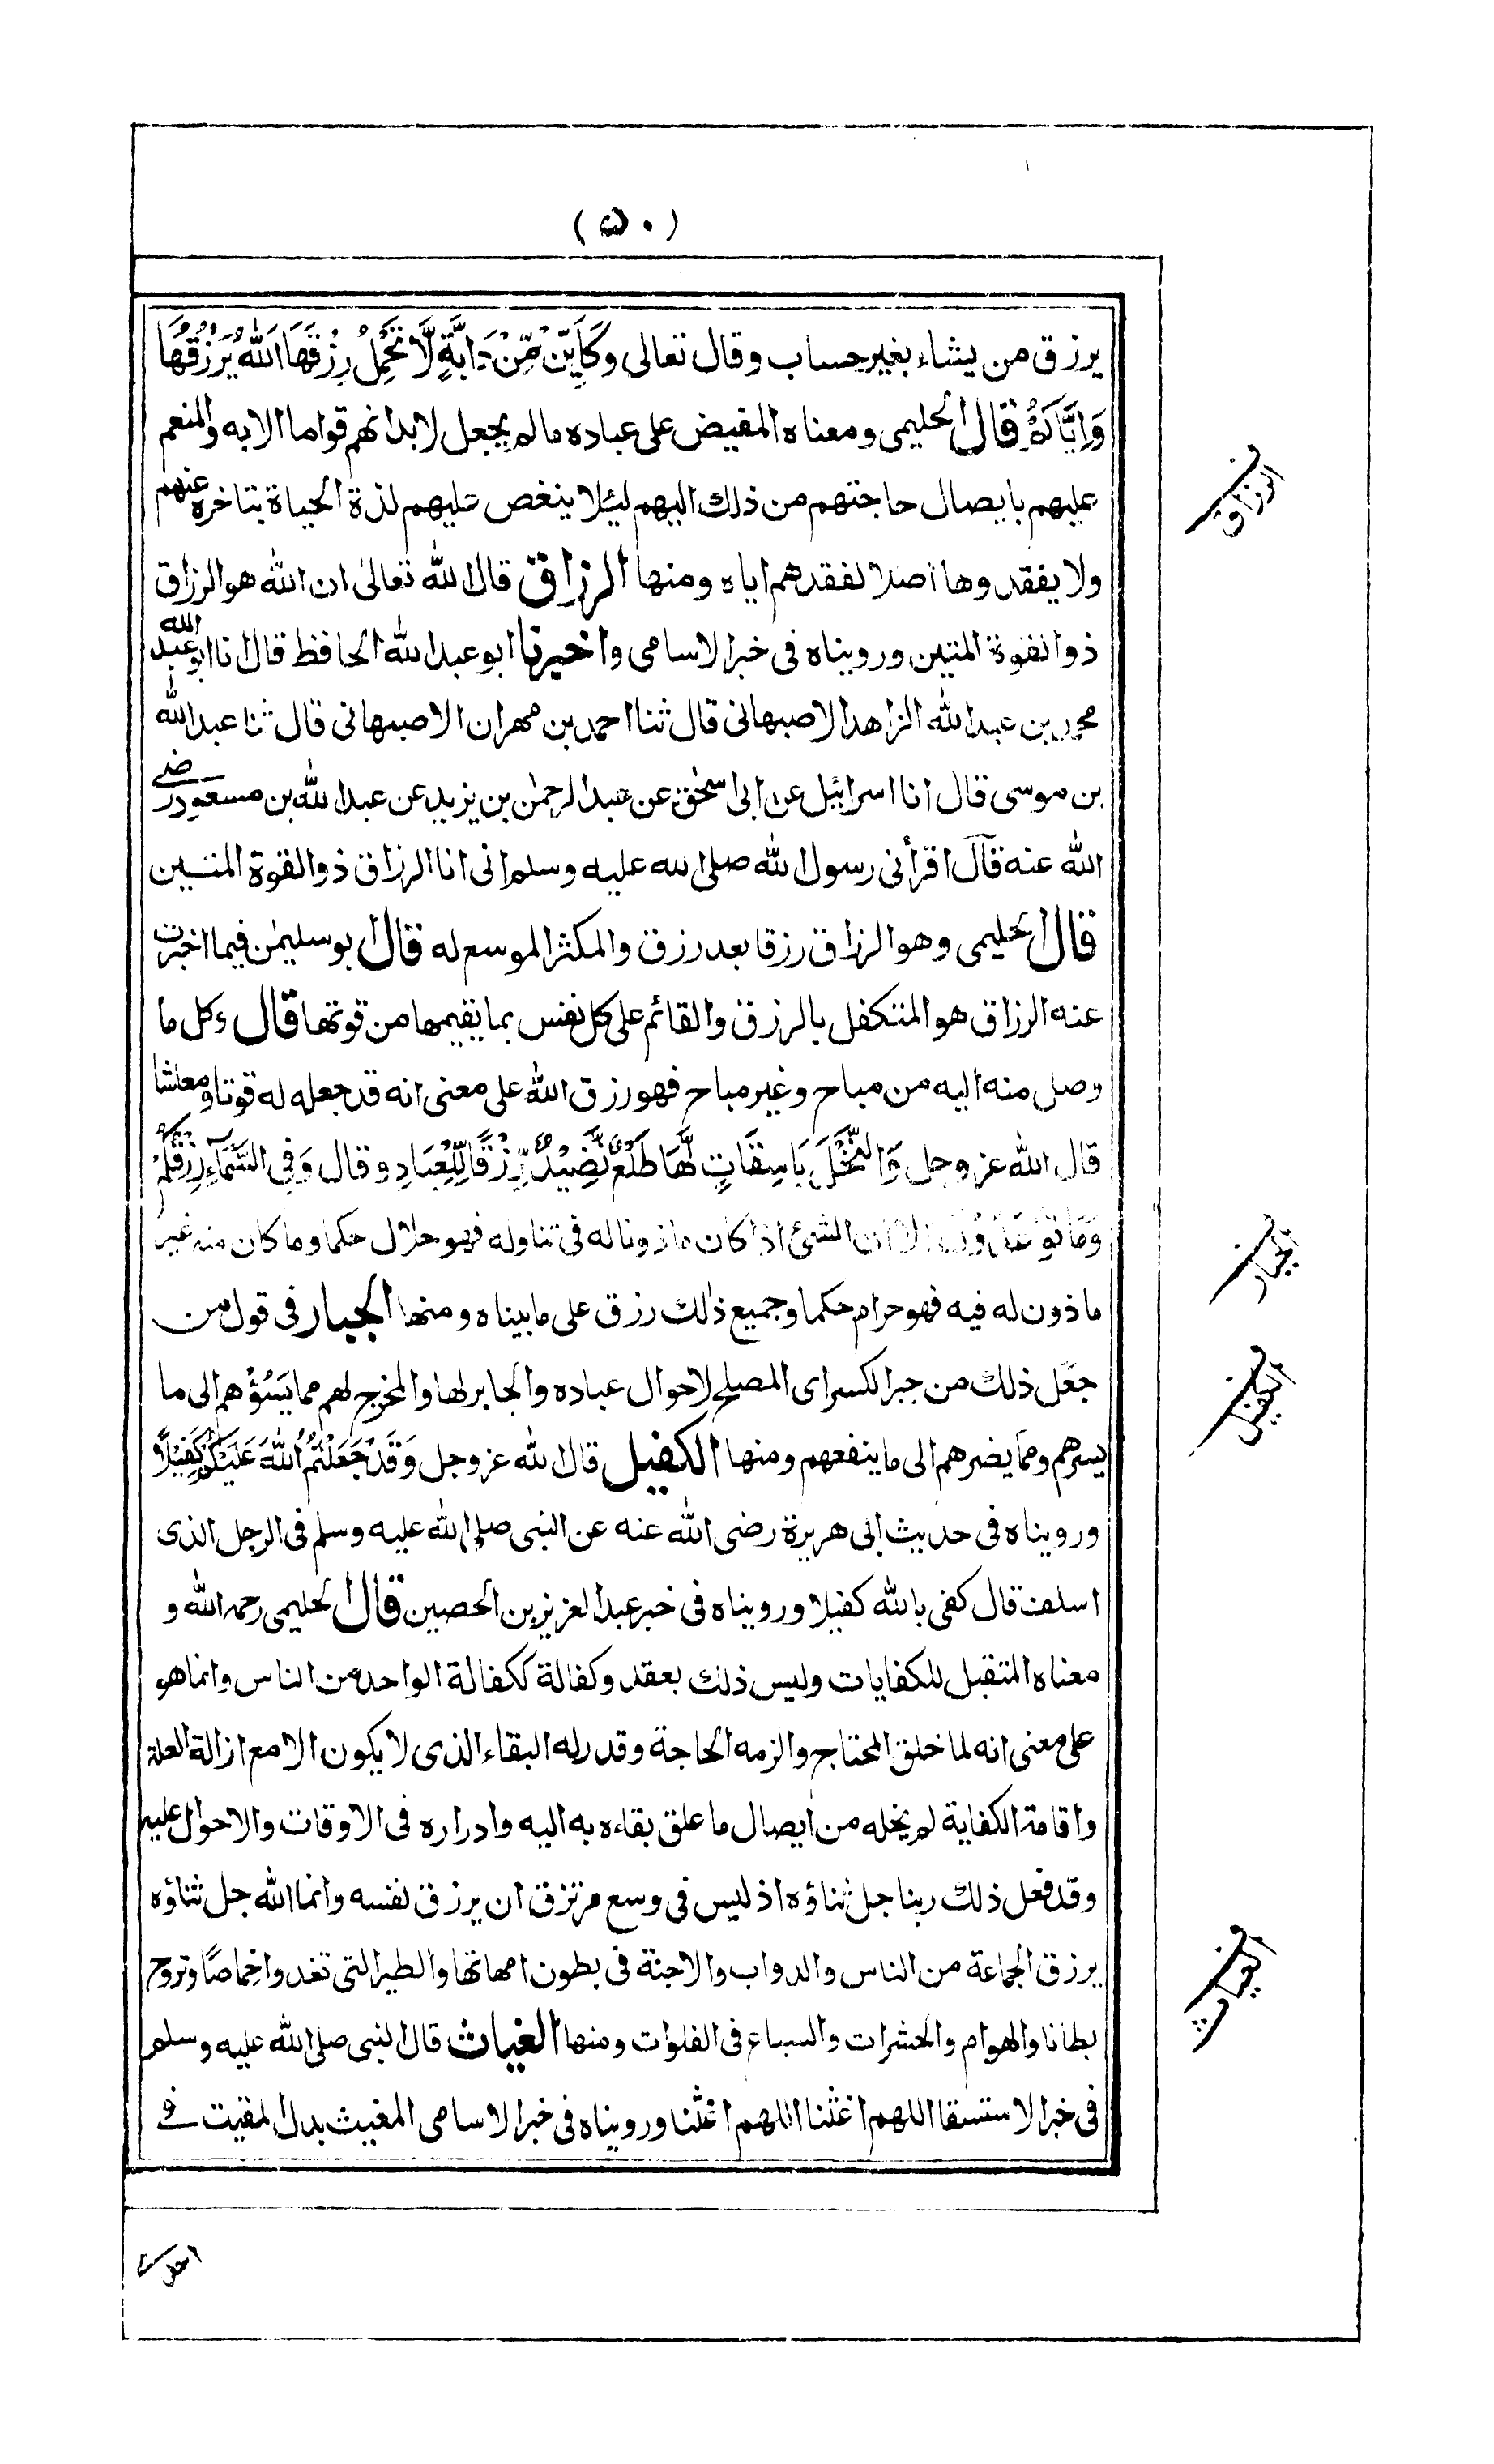 (٥٠)
يرزق من يشاء بغير حساب وقال تعالى وَكَأَيِّنْ مِّنْ دَابَّةٍ لَّا تَحْمِلُ رِزْقَهَا اَللّٰهُ يَرْزُقُهَا
وَاِيَّاكُمْ قال الحليمى ومعناه المفيض على عباده ما لم يجعل لابدانهم قواما الا به والمنعم
عليهم بايصال حاجتهم من ذلك اليهم ليئلا ينغص عليهم لذة الحياة بتاخره عنهم
ولا يفقدوها اصلا لفقدهم اياه ومنها الرزاق قال الله تعالى ان الله هو الرزاق
ذوالقوة المتين ورويناه فى خبر الاسامى واخبرنا ابو عبد الله الحافظ قال انا ابو عبد الله
محمد بن عبد الله الزاهد الاصبهانى قال ثنا احمد بن مهران الاصبهانى قال ثنا عبد الله
بن موسى قال انا اسرائيل عن ابى اسحٰق عن عبد الرحمٰن بن يزيد عن عبد الله بن مسعود رضى
الله عنه قال اقرأنى رسول الله صلى الله عليه وسلم انى انا الرزاق ذوالقوة المتين
قال الحليمى وهو الرزاق رزقا بعد رزق والمكثر الموسع له قال ابو سليمٰن فيما اخبرت
عنه الرزاق هو المتكفل بالرزق والقائم على كل نفس بما يقيمها من قوتها قال وكل ما
وصل منه اليه من مباح وغير مباح فهو رزق الله على معنى انه قد جعله له قوتا ومعاشا
قال الله عز وجل وَالنَّخْلَ بَاسِقَاتٍ لَّهَا طَلْعٌ نَّضِيْدٌ رِّزْقًا لِّلْعِبَادِ وقال وَفِى السَّمَآءِ رِزْقُكُمْ
وَمَا تُوْعَدُوْنَ الا ان الشئ اذا كان ماذونا له فى تناوله فهو حلال حكما وما كان منه غير
ماذون له فيه فهو حرام حكما وجميع ذلك رزق على ما بيناه ومنها الجبار فى قول من
جعل ذلك من جبر الكسر اى المصلح لاحوال عباده والجابر لها والمخرج لهم مما يَسُؤْهم الى ما
يسرهم ومما يضرهم الى ما ينفعهم ومنها الكفيل قال الله عز وجل وَقَدْ جَعَلْتُمُ اللّٰهَ عَلَيْكُمْ كَفِيْلًا
ورويناه فى حديث ابى هريرة رضى الله عنه عن النبى صلى الله عليه وسلم فى الرجل الذى
اسلف قال كفى بالله كفيلا ورويناه فى خبر عبد العزيز بن الحصين قال الحليمى رحمه الله و
معناه المتقبل للكفايات وليس ذلك بعقد وكفالة ككفالة الواحد من الناس وانما هو
على معنى انه لما خلق المحتاج والزمه الحاجة وقدر له البقاء الذى لا يكون الا مع ازالة العلة
واقامة الكفاية لم يخله من ايصال ما علق بقاءه به اليه وادراره فى الاوقات والاحوال عليه
وقد فعل ذلك ربنا جل ثناؤه اذ ليس فى وسع مرتزق ان يرزق نفسه وانما الله جل ثناؤه
يرزق الجماعة من الناس والدواب والاجنة فى بطون امهاتها والطير التى تغدو اخماصًا وتروح
بطانا والهوام والحشرات والسباع فى الفلوات ومنها الغياث قال النبى صلى الله عليه وسلم
فى خبر الاستسقا اللهم اغثنا اللهم اغثنا ورويناه فى خبر الاسامى المغيث بدل المقيت فى
الرزاق
الجبار
الكفيل
الغياث